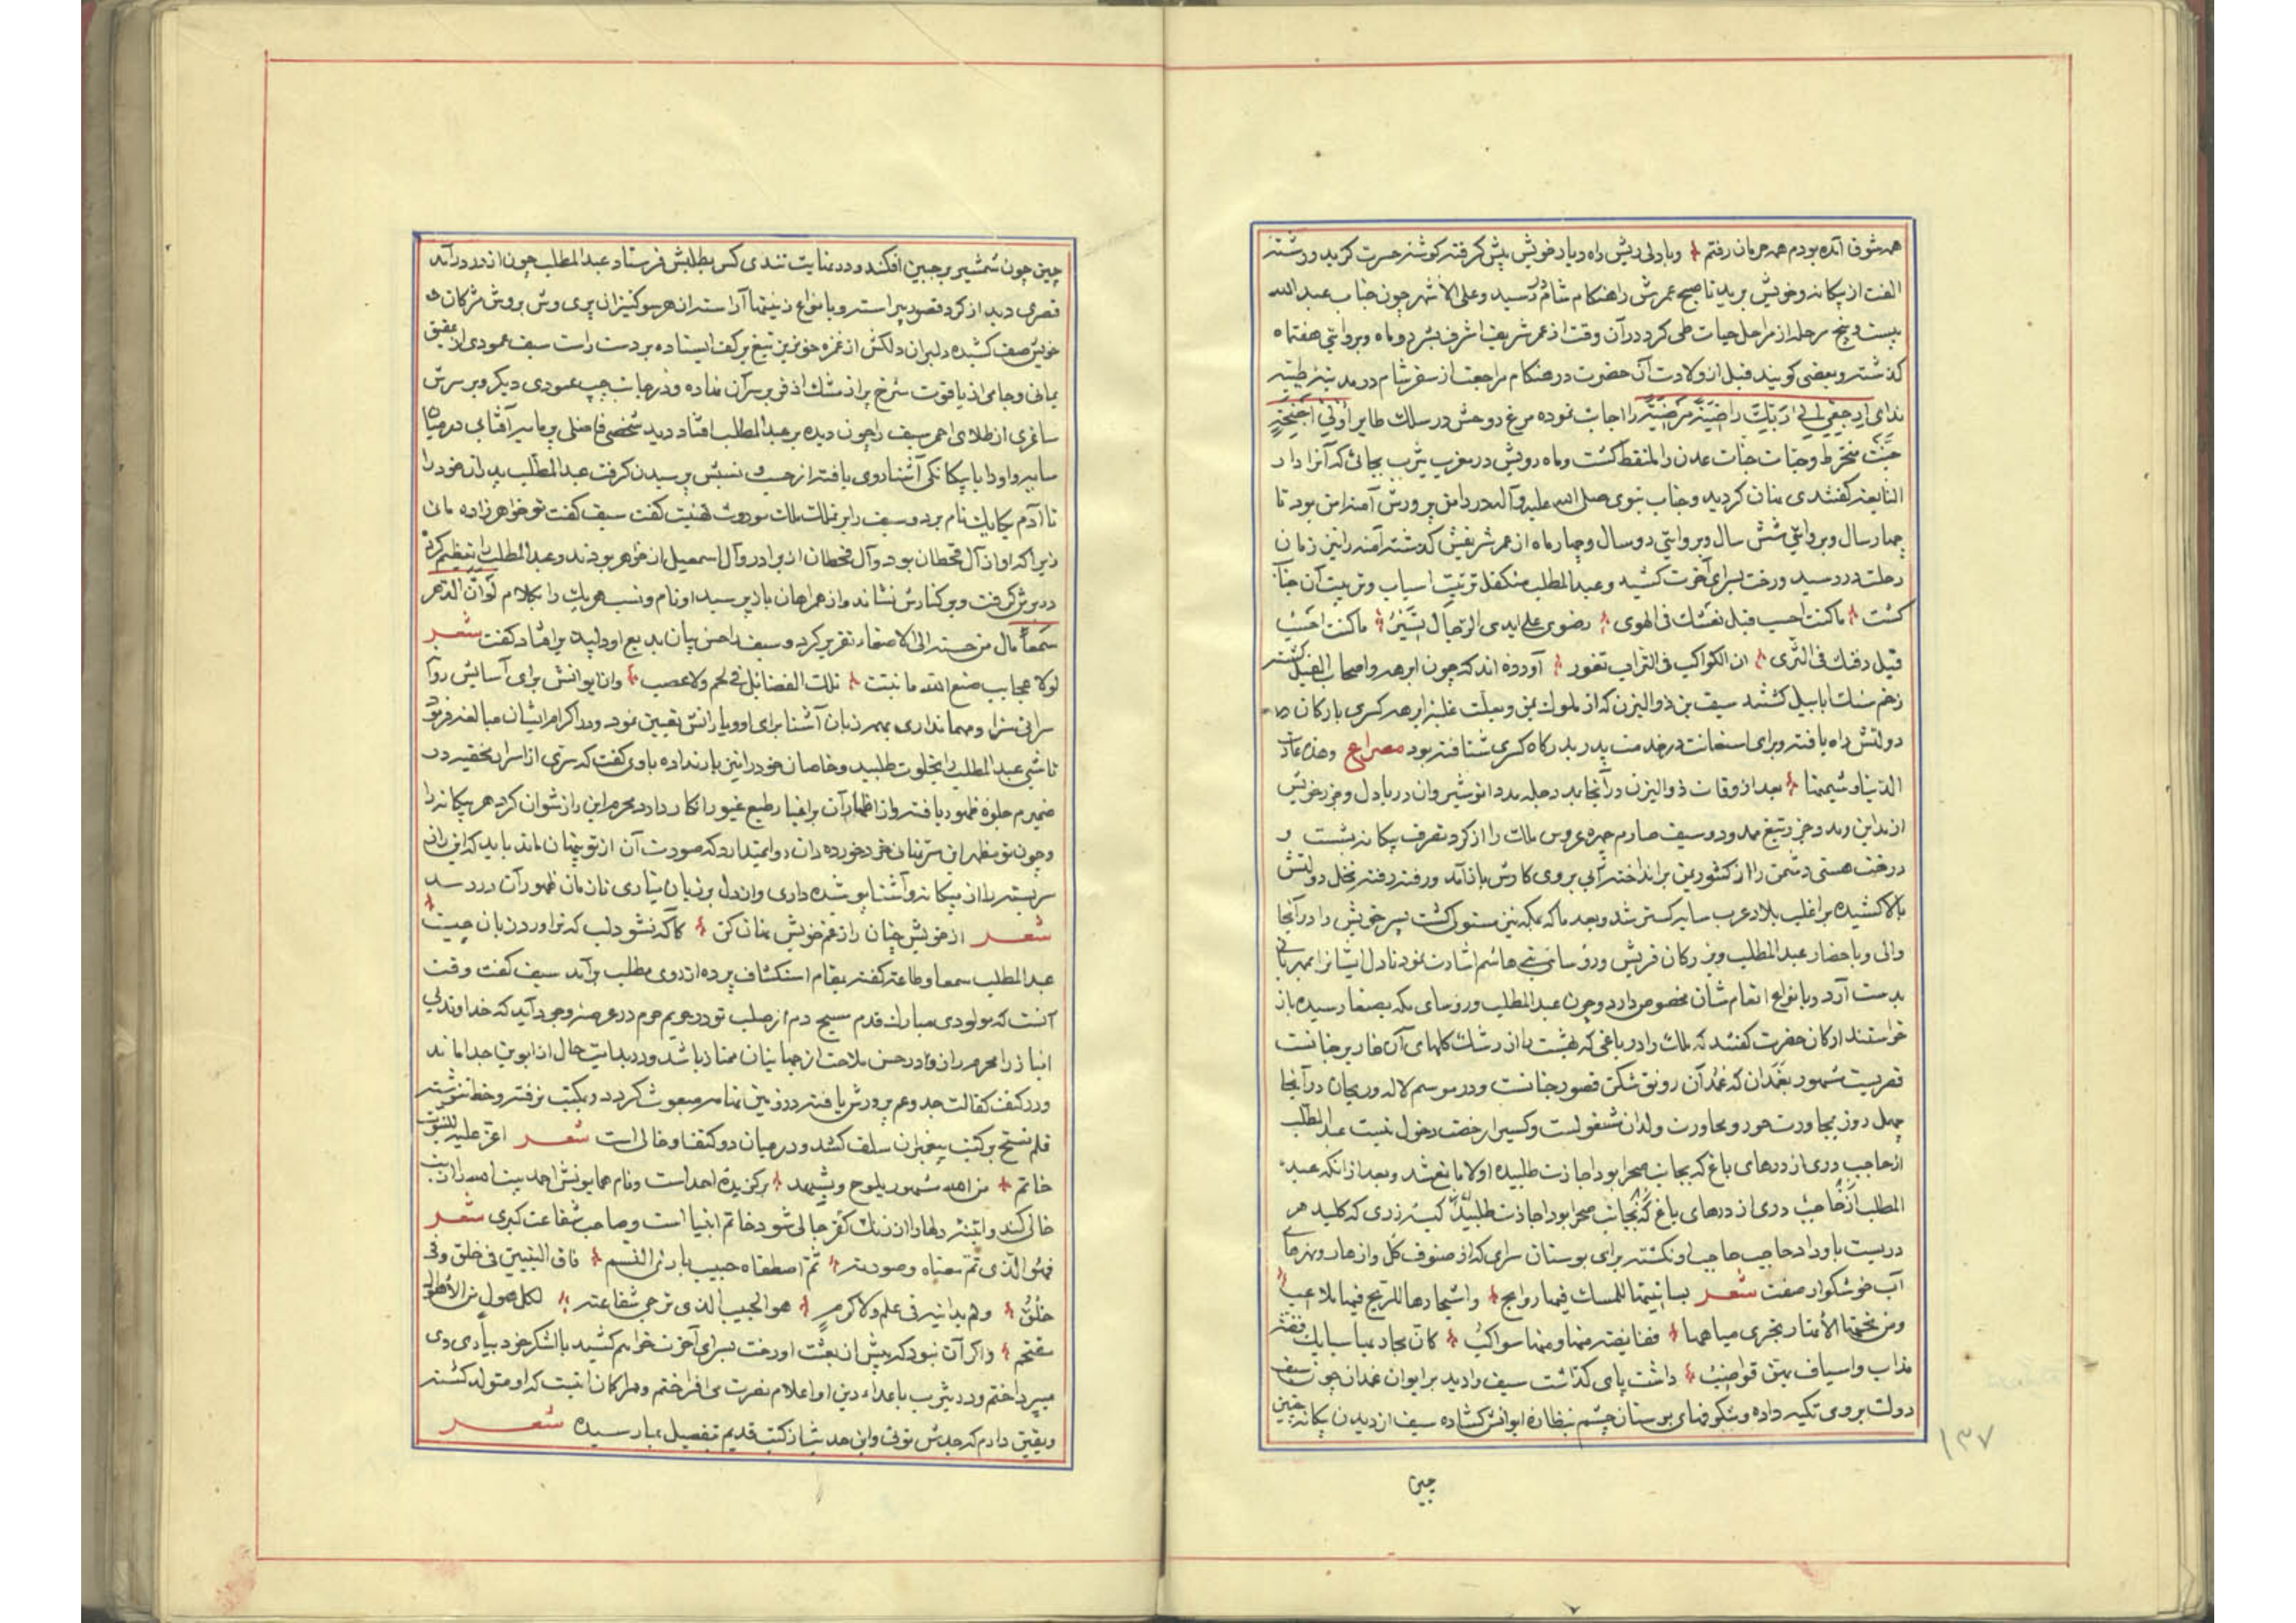 همه شوق آمده بودم همه حرمان رفتم و بادلی ریش راه دیار خویش پیش گرفته گوشه حسرت گزید و رشته
الفت از بیکانه و خویش برید تا صبح عمرش را هنکام شام در رسید و علی الاشهر چون جناب عبد الله
بیست و پنج مرحله از مراحل حیات طی کرد در آن وقت از عمر شریف اشرف بشر دو ماه و بروایتی هفتماه
کذشته و بعضی کویند قبل از ولادت آن حضرت در هنکام مراجعت از سفر شام در مدینه طیبه
ندای ارجعی الی ربک راضیة مرضیة را اجابت نموده مرغ روحش در سلک طایر اولی اجنحة
جنت منخرط و حبات جنات عدن را ملتقط کشت و ماه رویش در مغرب یثرب بجائی که آنرا دار
النابغه کفتندی نهان کردید و جناب نبوی صلی الله علیه و آله در دامن پرورش آمنه امن بود تا
چهار سال و بروایتی شش سال و بروایتی دو سال و چهار ماه از عمر شریفش کذشته آمنه را نیز زمان
رحلت در رسید و رخت بسرای آخرت کشید و عبد المطلب متکفل ترتیب اسباب و تربیت آن جناب
کشت ما کنت احسب قبل نعشک فی الهوی رضوی علی ایدی الرجال تسیر ما کنت احسب
قبل دفنک فی الثری ان الکواکب فی التراب تغور آورده اند که چون ابرهه و اصحاب الفیل کشته
زخم سنک ابابیل کشتند سیف بن ذو الیزن که از ملوک یمن و بعلت غلبه ابرهه کسری بارکان
دولتش راه یافته و برای استعانت در خدمت پدر بدرکاه کسری شتافته بود مصراع وهذه عادة
الدنیا و شیمتها بعد از وفات ذو الیزن در آنجا بمدد انوشیروان دریا دل و جزر خویش
از مداین و مد و جزر تیغ ممدود و سیف صارم چهره عروس ملک را از کرد تصرف بیکانه بشست و
درخت هستی دشمن را از کشور یمن برانداخته آبی بروی کارش باز آمد و رفته رفته نخل دولتش
بالا کشیده بر اغلب بلاد عرب سایه کستر شد و بعد ما که بمکه نیز مستولی کشت پسر خویش را در آنجا
والی و باحضار عبد المطلب و بزرکان قریش و رؤسای بنی هاشم اشارت نمود تا دل ایشانرا بمهربانی
بدست آرد و بانواع انعام شان مخصوص دارد و چون عبد المطلب و رؤسای مکه بصنعا رسیده بار
خواستند ارکان حضرت کفتند که ملک را در باغی که بهشت را از رشک کلهای آن خار بر جانست
قصریست مشهور بغمدان که غمدان رونق شکن قصور جنانست و در موسم لاله و ریحان در آنجا
چهل روز بمجاورت حور و محاورت ولدان مشغولست و کسیرا رخصت دخول نیست عبد المطلب
از حاجب دری از درهای باغ که بجانب صحرا بود اجازت طلبیده اولا مانع شد و بعد از آنکه عبد
المطلب از حاجب دری از درهای باغ که بجانب صحرا بود اجازت طلبید کیسه زری که کلید هر
دریست باو داد حاجب حاجب او نکشته برای بوستان سرای که از صنوف کل و ازهار و نهرهای
آب خوشکوار صفت شعر بساتینها للمسک فیها روایح و اشجارها للریح فیها ملاعب
و من تحتها الأنهار تجری میاهها ففایضة منها و منها سواکب کان بجاریها سبایک فضة
مذاب و اسیاف بهن قواضب داشت پای کذاشت سیف را دید بر ایوان غمدان چون سیف
دولت بروی تکیه داده و بشکوفهای بوستان چشم بنظاره ایوانش کشاده سیف از دیدن بیکانه چین
چین
۱۳۷
چین چون شمشیر بر جبین افکند و در نهایت تندی کس بطلبش فرستاد عبد المطلب چون از در در آمد
قصری دید از کرد قصور پیراسته و بانواع زینتها آراسته از هر سو کنیزان پری وش بروش مژکان
خویش صف کشیده دلبران دلکش از غمزه خونریز تیغ بر کف ایستاده بر دست راست سیف عمودی از عقیق
یمانی و جامی از یاقوت سرخ پر از مشک اذفر بر سر آن نهاده و در جانب چپ عمودی دیکر و بر سرش
ساغری از طلای احمر سیف را چون دیده بر عبد المطلب افتاد دید شخصی فاضلی پرمایه آفتابی در میان
سایه و او را با بیکانکی آشنا روی یافته از حسب و نسبش پرسیدن کرفت عبد المطلب پدران خود را
تا آدم یکایک نام برد و سیف را بر تملک ملک موروث تهنیت کفت سیف کفت تو خواهر زاده مائی
زیرا که او از آل قحطان بود و آل قحطان از برادر و آل اسمعیل از خواهر بودند و عبد المطلب را تعظیم کرده
در بر کرفت و بر کنارش نشاند و از همراهان باز پرسید او نام و نسب هر یک را بکلام لو ان الدهر
سمعا مال من حسنه الی الاصغاء تقریر کرد و سیف را حسن بیان بدیع او دلپذیر افتاد کفت شعر
لولا عجایب صنع الله ما نبتت تلک الفضائل فی لحم و لا عصب و انا یوانش برای آسایش روا
سرائی سزا و مهمانداری بمهر زبان آشنا برای او و یارانش تعیین نمود و در اکرام ایشان مبالغه فرمود
تا شبی عبد المطلب را بخلوت طلبید و خاصان خود را نیز بار نداده باوی کفت که سری از اسرار بحقیر در
ضمیرم جلوه ظهور یافته و از اظهار آن بر اغیار طبع غیور انکار دارد محرم این راز نتوان کرد هر بیکانه را
و چون تو مظهر این سر نهانی خرد خورده دان و امیدوارد که صورت آن از تو پنهان ماند باید که این راز
سربسته را از بیکانه و آشنا پوشیده داری و از دل بر زبان نیاری تا زمان ظهور آن در رسد
شعر از خویش چنان راز غم خویش نهان کن کاکه نشود لب که براوردن بان چیست
عبد المطلب سمعا و طاعة کفته بمقام استکشاف پرده از روی مطلب بر آمد سیف کفت وقت
آنست که مولودی مبارک قدم مسیح دم از صلب تو در حریم حرم در عرصه وجود آید که خداوند بی
انباز را محرم راز و در حسن ملاحت از جهانیان ممتاز باشد و در بدایت حال از ابوین جدا ماند
و در کنف کفالت جد و عم پرورش یافته در زمین تهامه مبعوث کردد و بمکتب نرفته و خط ننوشته
قلم نسخ بر کتب پیغمبران سلف کشد و در میان دو کتفها و خالی است شعر اغر علیه للنبوة
خاتم من الله مشهور یلوح و یشهد برکزیده احد است و نام همایونش احمد بیت الله را از بت
خالی کند و آینه دلها را از زنک کفر جالی شود خاتم انبیا است و صاحب شفاعت کبری شعر
فهو الذی تم معناه و صورته ثم اصطفاه حبیبا بارئ النسم فاق النبیین فی خلق و فی
خلق و لم یدانیه فی علم و لا کرم هو الحبیب الذی ترجی شفاعته لکل هول من الأهوال
مقتحم و اکر آن نبود که پیش از بعثت او رخت بسرای آخرت خواهم کشید با لشکر خود بیاری وی
میپرداختم و در یثرب با اعداء دین او اعلام نصرت می افراختم و مرا کمان اینست که او متولد کشته
و یقین دارم که جدش توئی و این حدیث از کتب قدیم بتفصیل بما رسیده شعر